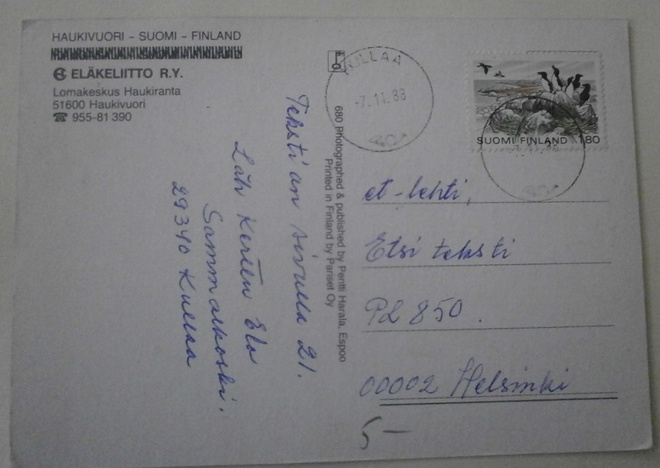 HAUKIVUORI - SUOMI - FINLAND
ELÄKELIITTO R.Y.
Lomakeskus Haukiranta
51600 Haukivuori
☎ 955-81 390
KULLAA
-7.11.88
SUOMI FINLAND 1,80
680 Photographed & published by Pentti Harala, Espoo
Printed in Finland by Pariset Oy
Teksti on sivulla 21.
Läh. Kerttu Elo
Sammalkoski.
29340 Kullaa
et-lehti,
Etsi teksti
PL 850.
00002 Helsinki
5-